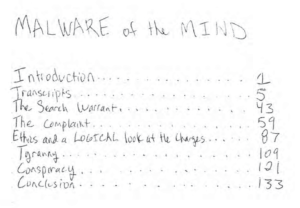 MALWARE of the MIND
Introduction............ 1
Transcripts............. 5
The Search Warrant............. 43
The Complaint............. 59
Ethics and a LOGICAL look at the Charges..... 87
Tyranny............. 109
Conspiracy............. 121
Conclusion............. 133